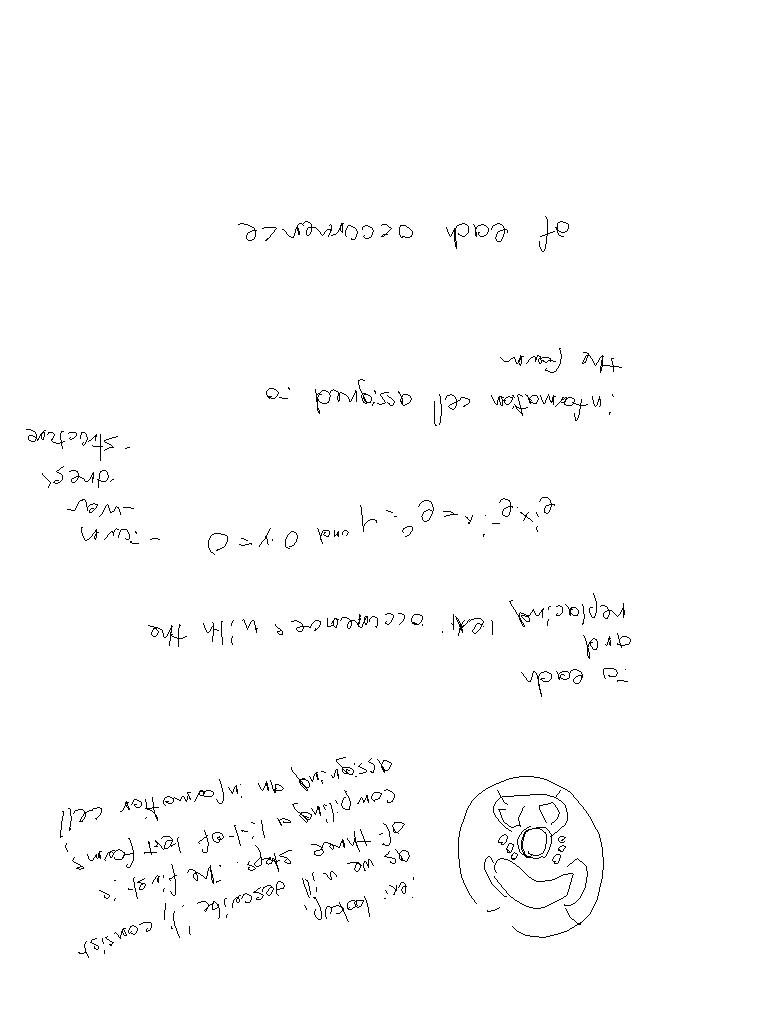 text lookup,
as we will describe it, consist
of three steps. The first is
compiling a list of text forms,
assigning an information cell
to each
and
replacing text occurrences with the
eⁱˣe⁻ⁱˣ = e⁰ = 1 and 0y = 0
- structure
information cell assigned to
the form
of each occurrence